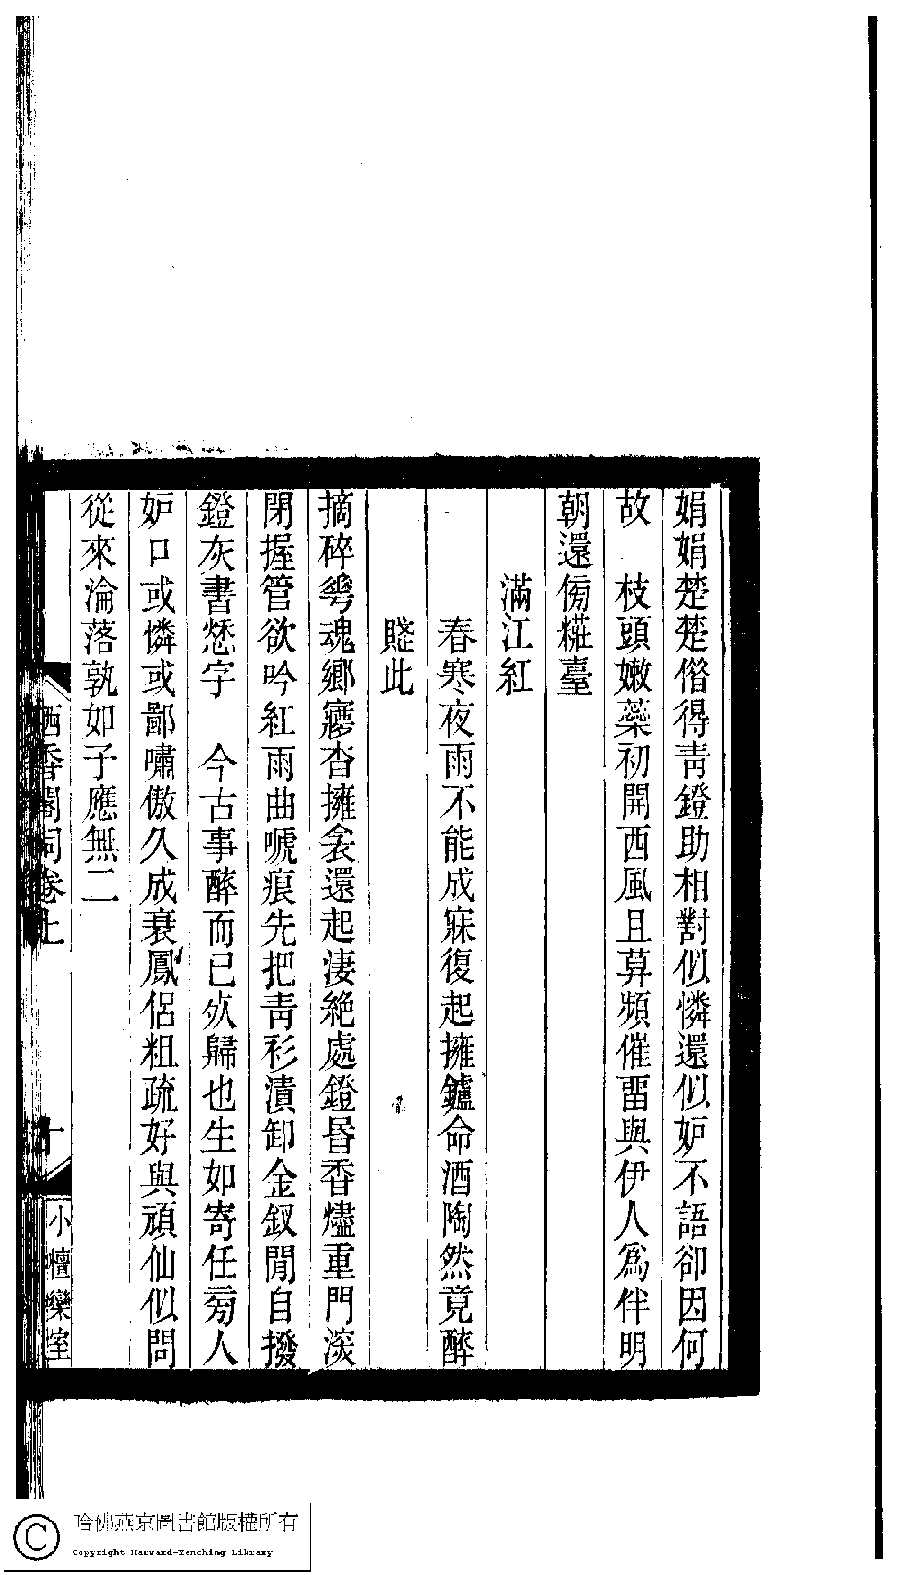 娟娟楚楚偺得靑鐙助相對似憐還似妒不語卻因何
故　枝頭嫩蘂初開西風且莫頻催畱與伊人爲伴明
朝還傍糚臺
滿江紅
春寒夜雨不能成寐復起擁鑪命酒陶然竟醉
賤此
摘碎㝳魂鄉㝱杳擁衾還起淒絶處鐙昏香燼重門深
閉握管欲吟紅雨曲唬痕先把靑衫漬卸金釵閒自撥
鐙灰書愁字　今古事醉而已歸也生如寄任旁人
妒口或憐或鄙嘯傲久成衰鳳侶粗疏好與頑仙似問
從來淪落孰如子應無二
栖香閣詞卷上
十
小檀欒室
哈佛燕京圖書館版權所有
Copyright Harvard-Yenching Library